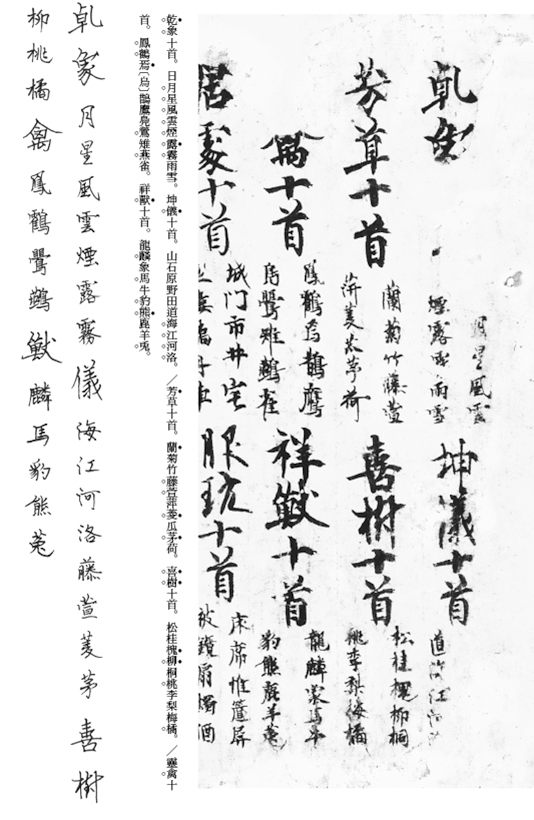 乹象
月星風雲
煙露霧雨雪
坤儀十首
道海江河
芳草十首
蘭菊竹藤萱
萍菱瓜茅荷
喜樹十首
松桂槐柳桐
桃李梨梅橘
禽十首
鳳鶴焉鵲鷹
鳧鶯雉鷰雀
祥獣十首
龍麟象馬牛
豹熊鹿羊菟
居處十首
城門市井宅
橋舟車
服玩十首
床席帷簾屏
被鏡扇燭酒
乾象十首。日月星風雲煙露霧雨雪。坤儀十首。山石原野田道海江河洛。／芳草十首。蘭菊竹藤萱萍菱瓜茅荷。喜樹十首。松桂槐柳桐桃李梨梅橘。／靈禽十
首。鳳鶴焉〔烏〕鵲鷹鳧鶯雉燕雀。祥獸十首。龍麟象馬牛豹熊鹿羊兎。
乹象月星風雲煙露霧儀海江河洛藤萱菱茅喜樹
柳桃橘禽鳳鶴鶯鷰獣麟馬豹熊菟